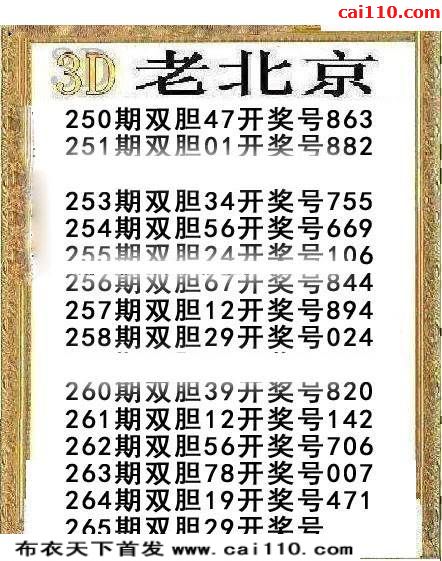 cai110.com
3D 老北京
250期双胆47开奖号863
251期双胆01开奖号882
253期双胆34开奖号755
254期双胆56开奖号669
255期双胆24开奖号106
256期双胆67开奖号844
257期双胆12开奖号894
258期双胆29开奖号024
260期双胆39开奖号820
261期双胆12开奖号142
262期双胆56开奖号706
263期双胆78开奖号007
264期双胆19开奖号471
265期双胆29开奖号
布衣天下首发 www.cai110.com